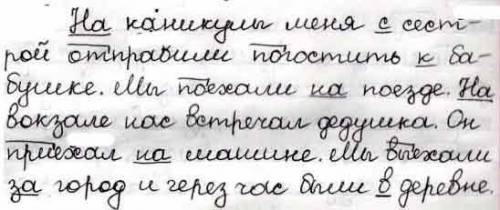 На каникулы меня с сест-
рой отправили погостить к ба-
бушке. Мы поехали на поезде. На
вокзале нас встречал дедушка. Он
приехал на машине. Мы выехали
за город и через час были в деревне.